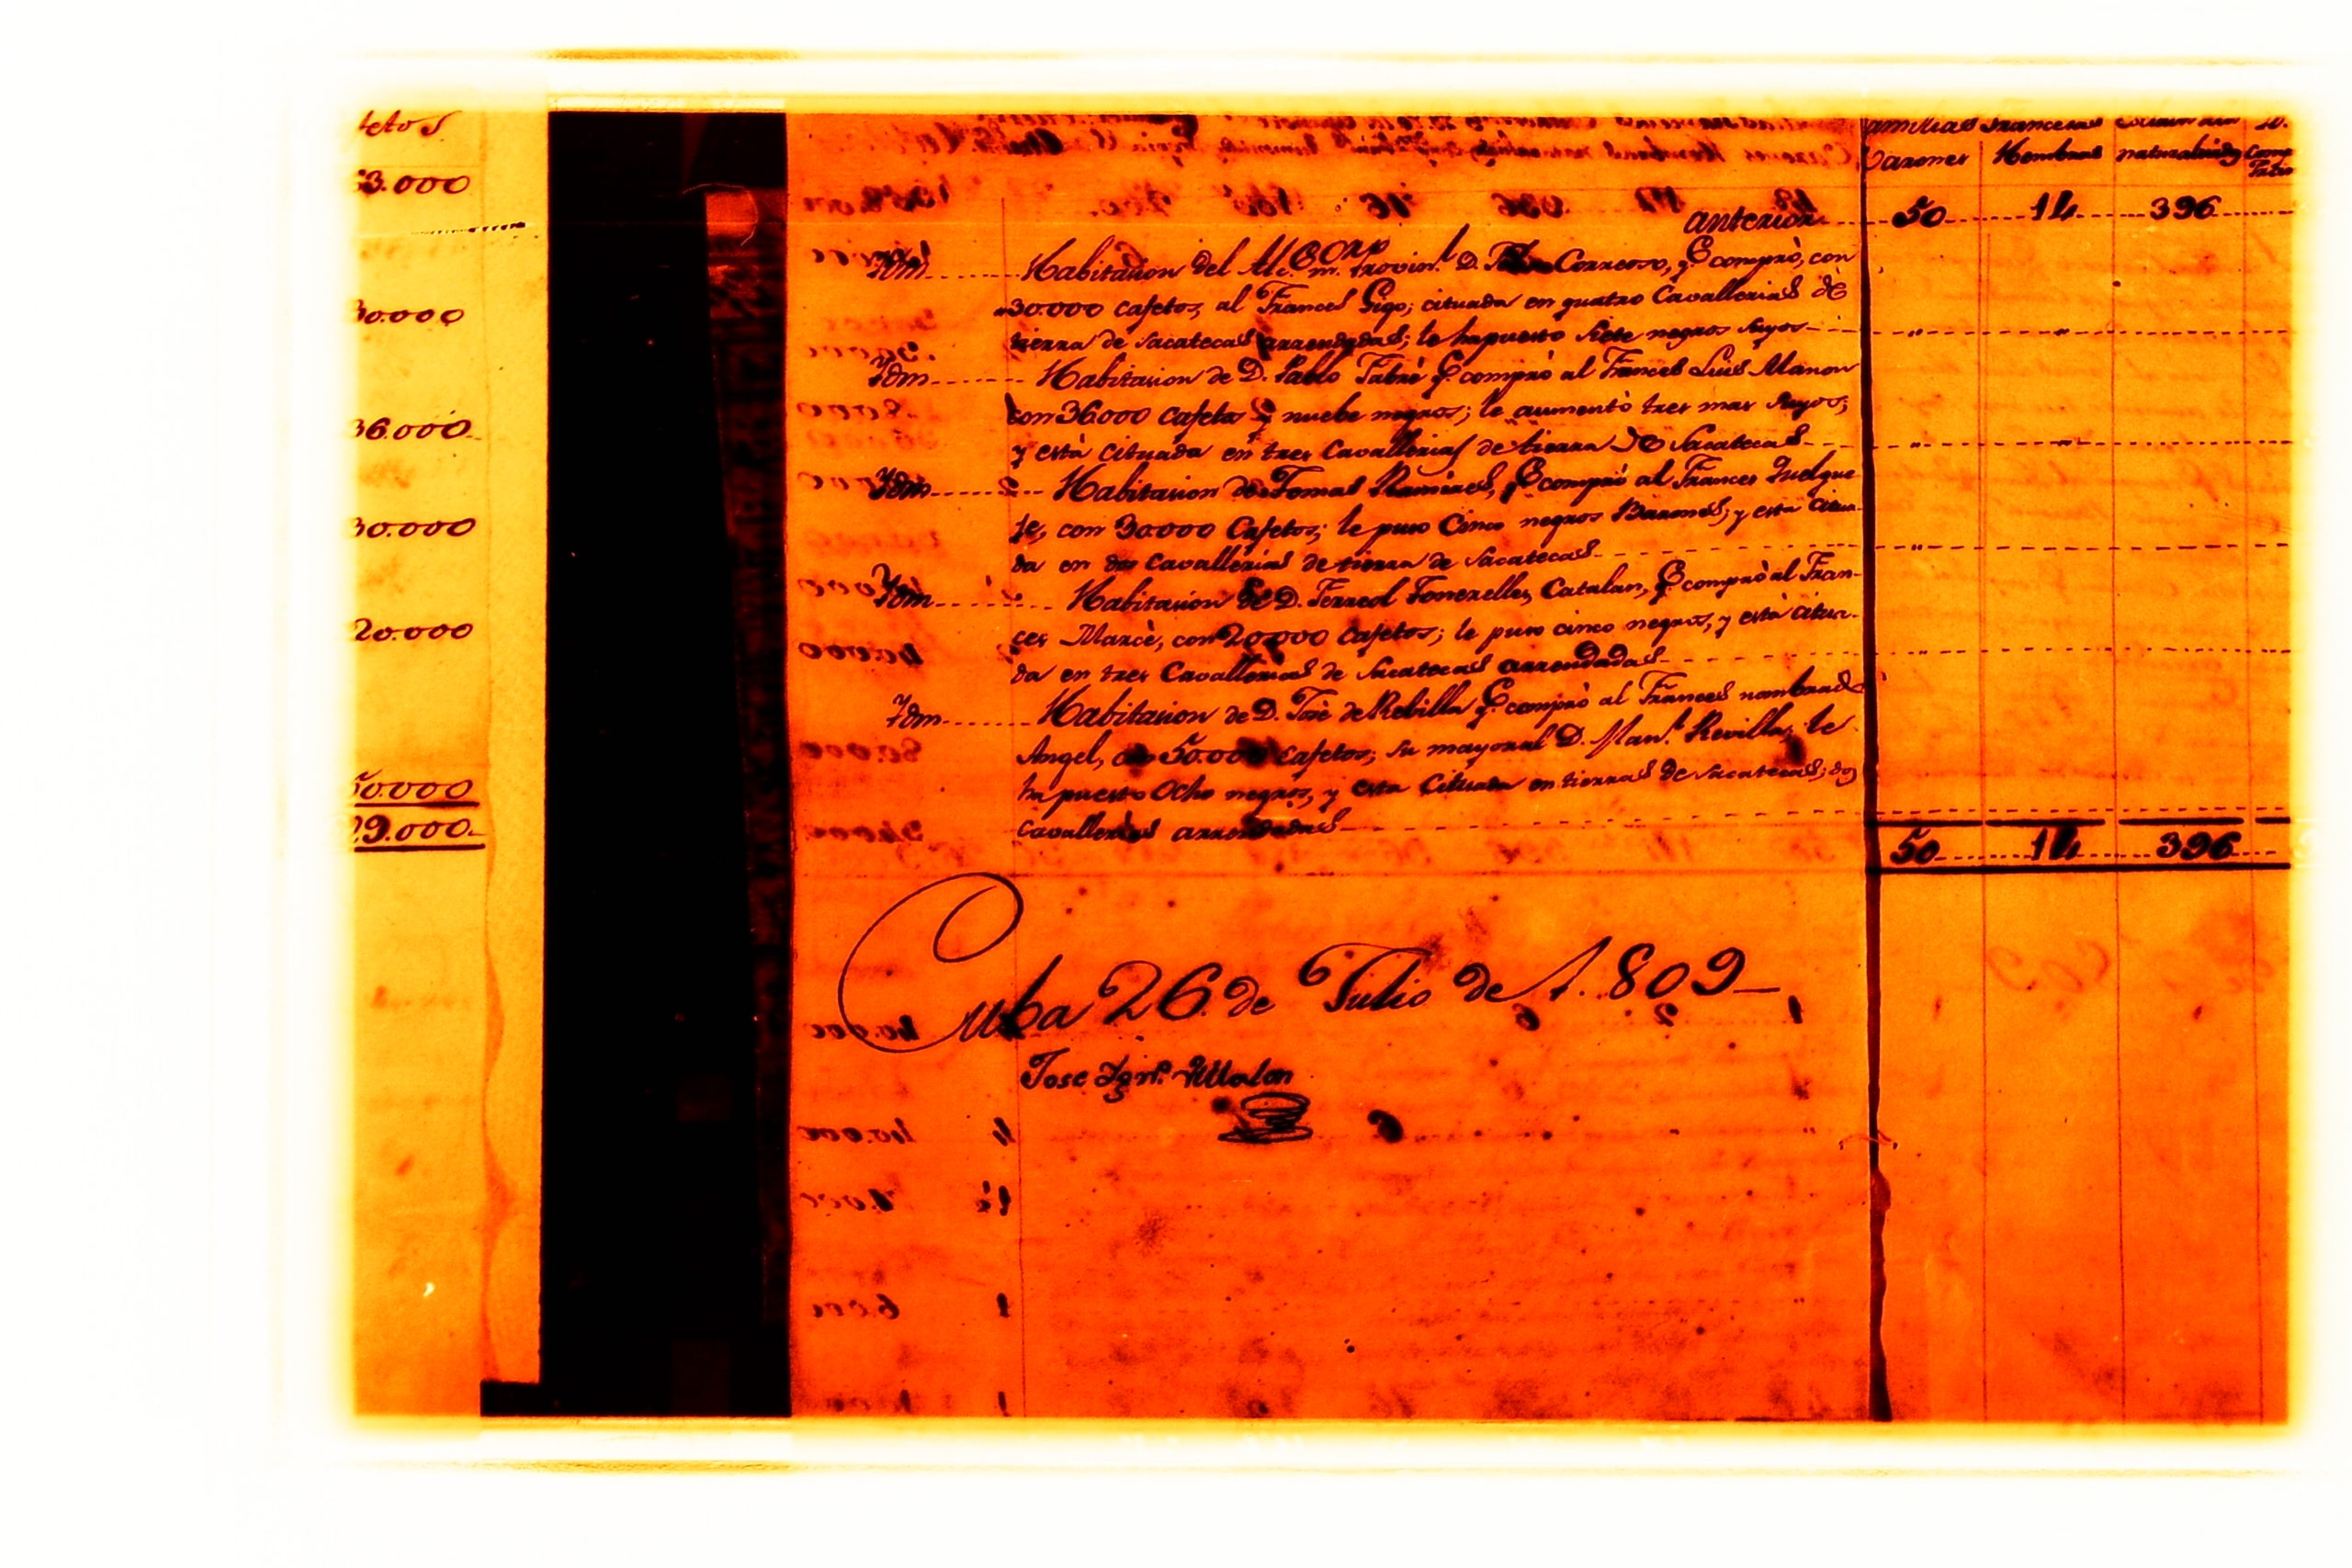 cafetos
3.000
30.000
36.000
30.000
20.000
50.000
29.000
familias Francesas
Varones Hembras naturalizados
anterior 50 14 396
Ydm Habitacion del Provin.l D. Correoso, q.e comprò, con
30.000 cafetos, al Frances Gigo; cituada en quatro Cavallerias de
tierra de Sacatecas arrendadas; le ha puesto siete negros suyos
Ydm Habitacion de D. Pablo Fabrè q.e comprò al Frances Luis Manon
con 36.000 cafetos y nuebe negros; le aumentò tres mas suyos;
y està cituada en tres Cavallerias de tierra de Sacatecas
Ydm Habitacion de Tomas Ramires, q.e comprò al Frances Guelque
je, con 30.000 Cafetos; le puso Cinco negros Barones; y esta citua-
da en dos Cavallerias de tierra de Sacatecas
Ydm Habitacion de D. Ferreol Fonrelles, Catalan, q.e comprò al Fran-
ces Marcè, con 20.000 cafetos; le puso cinco negros, y està citua-
da en tres Cavallerias de Sacatecas arrendadas
Ydm Habitacion de D. Josè de Rebilla q.e comprò al Frances nombrado
Angel, con 50.000 cafetos; su mayoral D. Man.l Revilla; le
ha puesto Ocho negros, y esta Cituada en tierras de Sacatecas; dos
cavallerias arrendadas
50 14 396
Cuba 26 de Julio de 1.809
Jose Ign.o Villalon